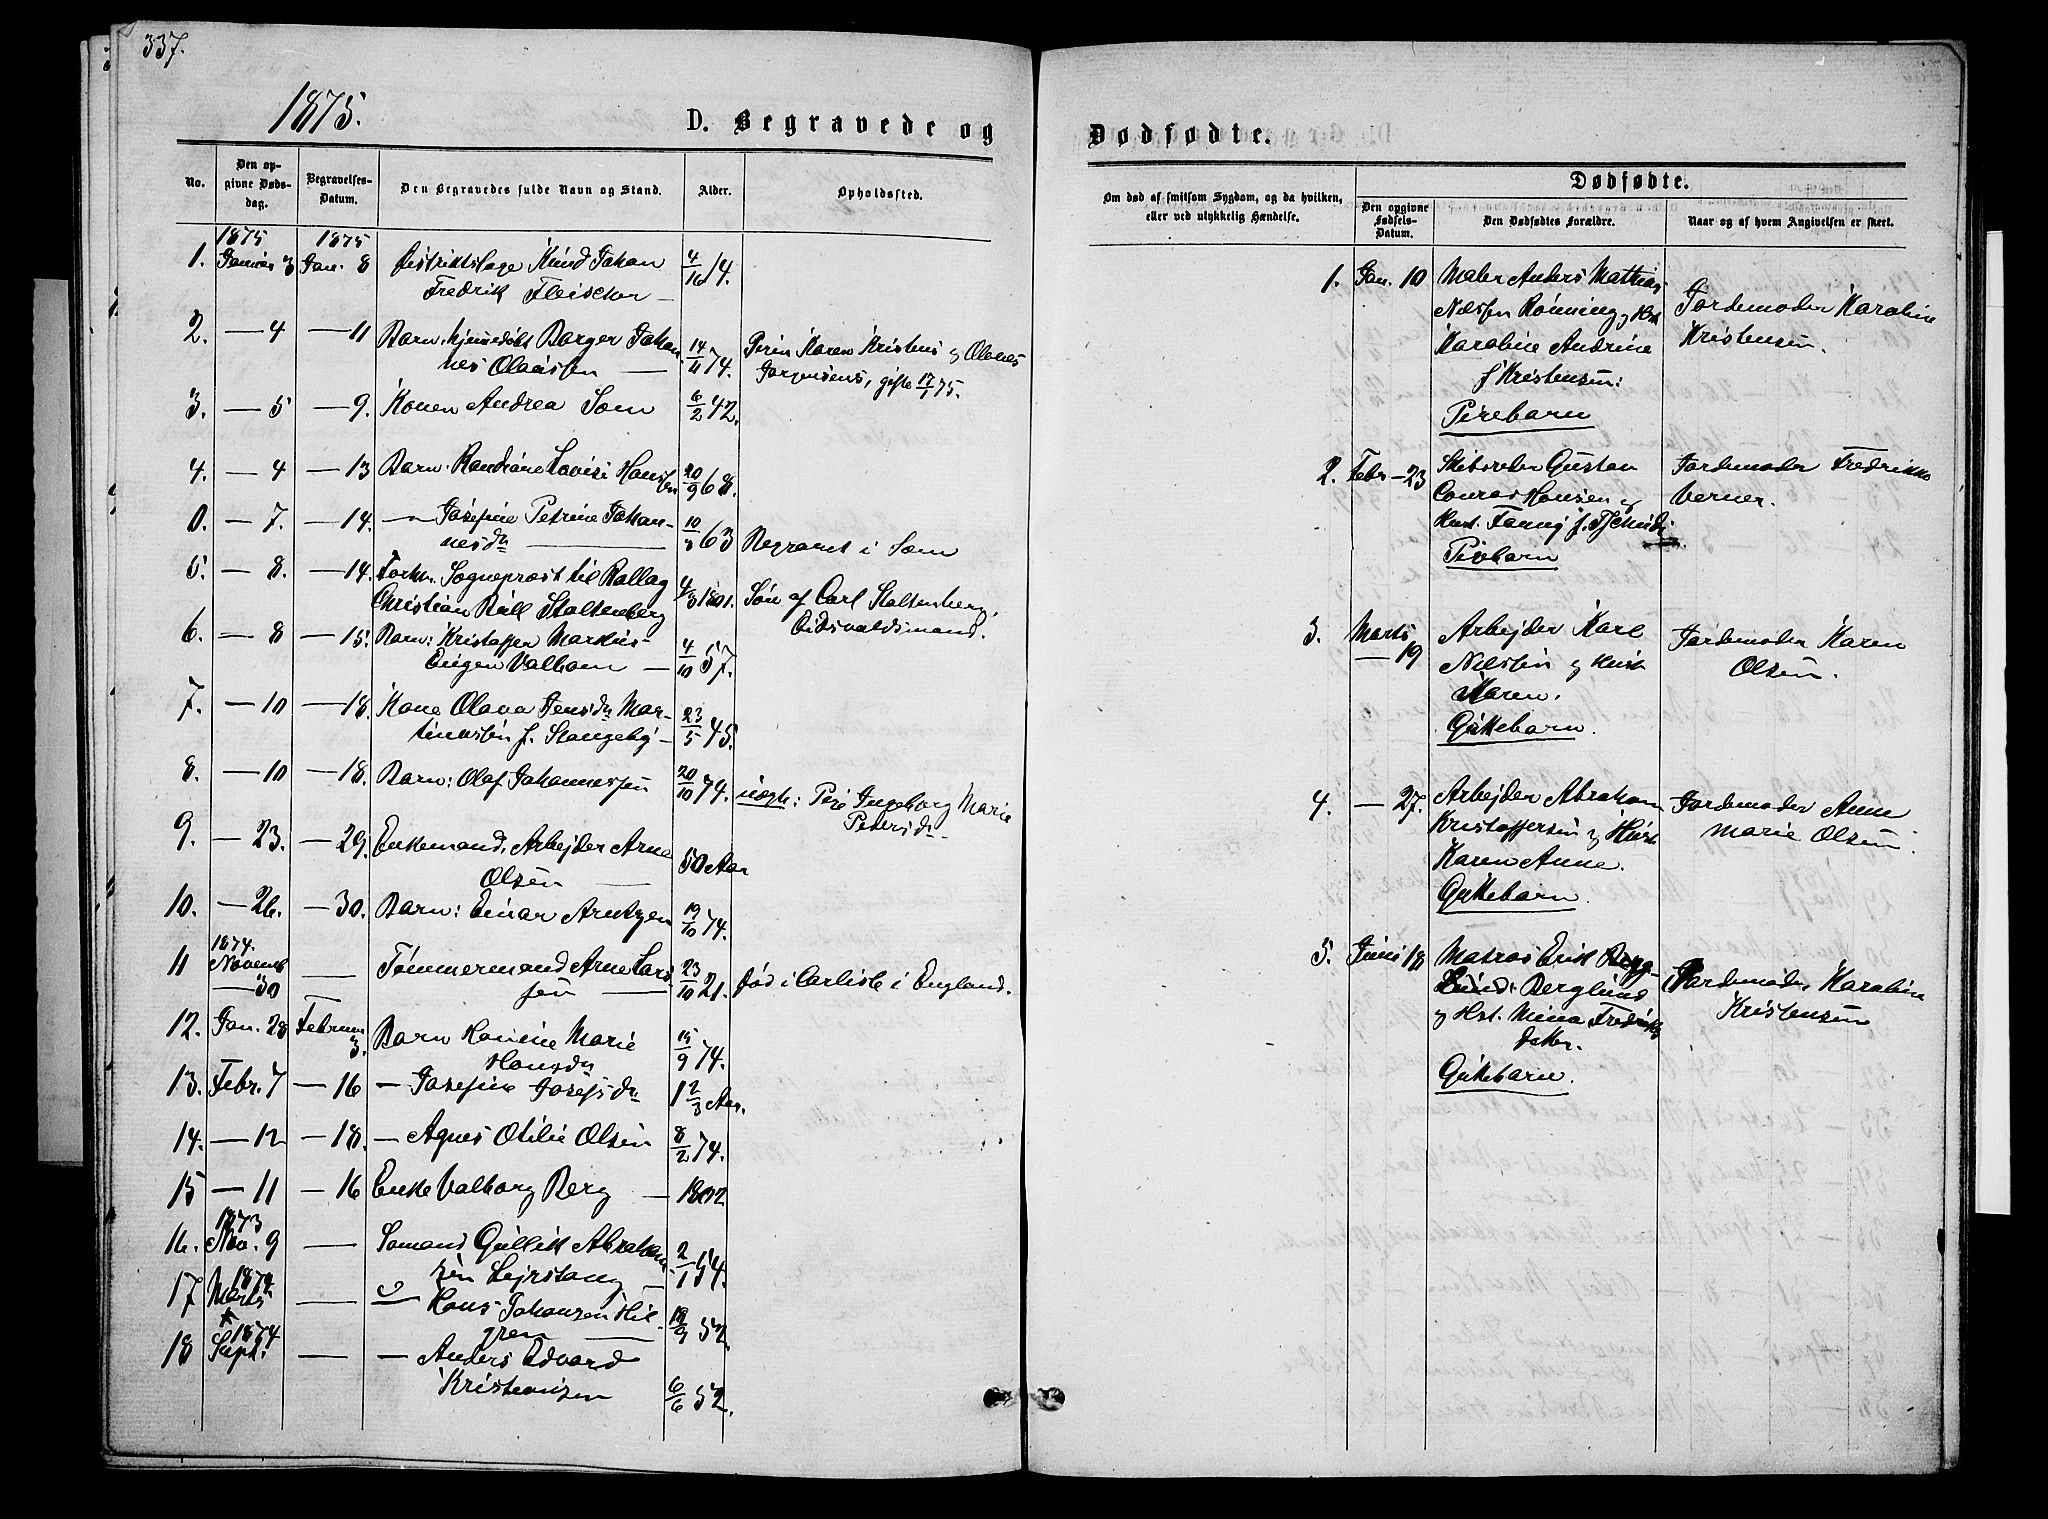 337.
1875.
D. Begravede og
Dødfødte.
No.
Den op-
givne Døds-
dag.
Begravelses-
Datum.
Den Begravedes fulde Navn og Stand.
Alder.
Opholdssted.
1875 1875
1. Januar 3 Jan. 8 Distriktslæge Knud Johan 4/10 14.
Fredrik Fleischer —
2. — 4 — 11 Barn, hjemmedøbt Borger Johan- 14/11 74. Pigen Karen Kristens og Olaves
nes Olaussen — Jørgensens, gifte 17/1 75.
3. — 5 — 9. Konen Andrea Soen 6/2 42.
4. — 4 — 13 Barn: Randiane Lovise Hansen 20/9 68.
0. — 7. — 14. — Josefine Petrine Johan- 10/3 63 Begravet i Soen
nesdn —
5. — 8. — 14. Forhn. Sogneprest til Rollag 4/3 1801. Søn af Carl Stoltenberg,
Christian Röll Stoltenberg Eidsvoldsmand.
6. — 8 — 15. Barn: Kristoffer Markus 4/10 57.
Eugen Valbom —
7. — 10 — 18. Kone Olava Jensdn Mar- 23/5 45.
tinussen f. Slangeby —
8. — 10 — 18. Barn: Olaf Johannessen 20/10 74. uægte: Pige Ingeborg Marie
Petersdn
9. — 23. — 29. Enkemand, Arbejder Arne 50 Aar
Olsen —
10. — 26. — 30. Barn: Einar Arntzen 19/10 74.
1874.
11 Novemb — Tømmermand Arne Lars- 23/10 21. død i Carlisle i England.
— 30 sen —
12. Jan. 28 Februar Barn Hanine Marie 15/9 74.
3. Hansdn
13. Febr. 7 — 16 — Josefine Josefsdn 1 2/3 Aar.
14. — 12 — 18. — Agnes Otilie Olsen 8/2 74.
15 — 11 — 16 Enke Valborg Berg — 1802
1873
16. Nov. 9 — Sømand Gullik Abraham- 2/1 54.
sen Lejrstang —
1874
17 Marts — — Hans Johansen Hil- 18/9 52
gren —
1874
18 Sept. — — Anders Edvard
Kristiansen 6/6 52.
Om død af smitsom Sygdom, og da hvilken,
eller ved ulykkelig Hændelse.
Dødfødte.
Den opgivne
Fødsels-
Datum.
Den Dødfødtes Forældre.
Naar og af hvem Angivelsen er skeet.
1. Jan. 10 Maler Anders Mathias
Nilssen Rønning og Hst Jordemoder Karoline
Karoline Andrine Kristensen.
f Kristensen:
Pigebarn
2. Febr — 23 Skibsreder Gustav Jordemoder Fredrikke
Conrad Hansen og Verner.
Hust. Fanny f.
Pigebarn
3. Marts Arbejder Karl Jordemoder Karen
— 19 Nilssen og Hust Olsen.
Karen.
Guttebarn.
4. — 27. Arbejder Abraham Jordemoder Anne
Kristoffersen og Hust Marie Olsen.
Karen Anne.
Guttebarn.
5. Juni 18 Matros Erik
Berglund Jordemoder Karoline
og Hst. Mina Fredriks- Kristensen
datter.
Guttebarn.